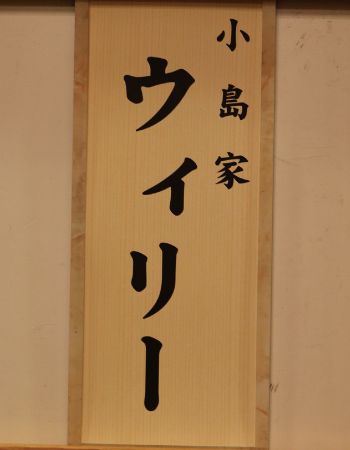 小島家
ウィリー